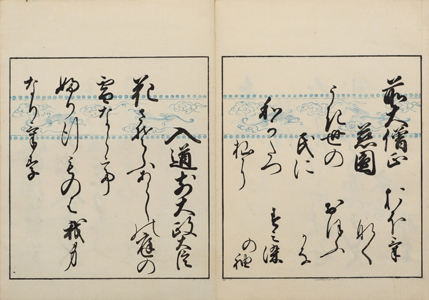 前大僧正
慈圓
おほけ
なく
うき世の
民に
おほふ
かな
和かたつ
杣に
すみ染
の袖
入道前大政大臣
花さそふあらしの庭の
雪ならて
ふり行ものハ我身
なりけり